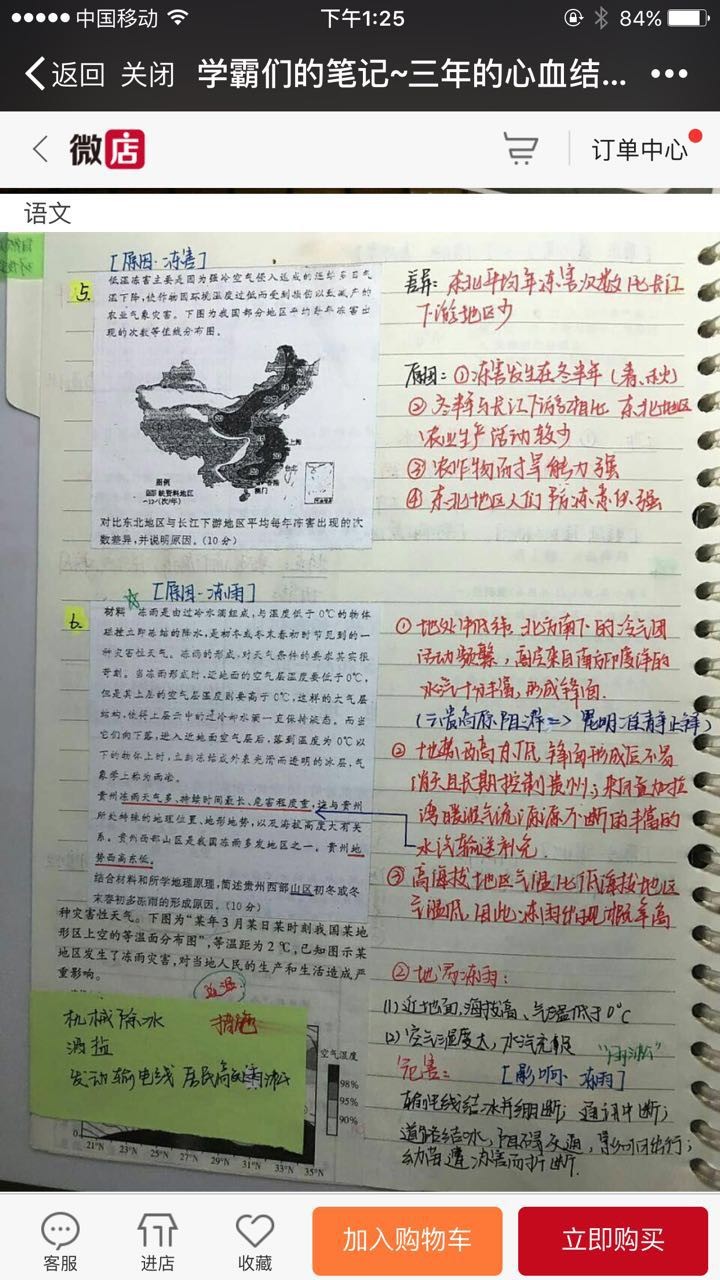 中国移动
下午1:25
84%
返回 关闭 学霸们的笔记~三年的心血结...
微店
订单中心
语文
[原因·冻害]
5.
低温冻害主要是因为强冷空气侵入造成的连续多日气
温下降,使作物因环境温度过低而受到损伤以致减产的
农业气象灾害。下图为我国部分地区平均每年冻害出
现的次数等值线分布图。
上海
台北
香港
澳门
图例
缺资料地区
(次/年)
对比东北地区与长江下游地区平均每年冻害出现的次
数差异,并说明原因。(10分)
差异: 东北平均年冻害次数比长江
下游地区少
原因: ①冻害发生在冬半年(春、秋)
②冬半年与长江下游相比 东北地区
农业生产活动较少
③农作物耐旱能力强
④东北地区人们防冻意识强
[原因·冻雨]
6.
材料 冻雨是由过冷水滴组成,与温度低于0℃的物体
碰撞立即冻结的降水,是初冬或冬末春初时节见到的一
种灾害性天气。冻雨的形成,对天气条件的要求其实很
苛刻。当冻雨形成时,近地面的空气层温度要低于0℃,
但是其上层的空气层温度则要高于0℃,这样的大气层
结构,使得上层云中的过冷却水滴一直保持液态。而当
它们向下落,进入近地面空气层后,落到温度为0℃以
下的物体上时,立刻冻结成外表光滑而透明的冰层,气
象学上称为雨凇。
贵州冻雨天气多、持续时间最长、危害程度重,这与贵州
所处特殊的地理位置、地形地势,以及海拔高度大有关
系。贵州西部山区是我国冻雨多发地区之一。贵州地
势西高东低。
结合材料和所学地理原理,简述贵州西部山区初冬或冬
末春初多冻雨的形成原因。(10分)
①地处中低纬,北方南下的冷气团
活动频繁,高层来自南方印度洋的
水汽十分丰富,形成锋面.
(云贵高原阻滞=>昆明准静止锋)
②地势西高东低,锋面形成后不易
消失且长期控制贵州;来自孟加拉
湾暖湿气流源源不断的丰富的
水汽输送补充.
③高海拔地区气温比低海拔地区
气温低,因此冻雨出现概率高
种灾害性天气。下图为“某年3月某日某时刻我国某地
形区上空的等温面分布图”,等温距为2℃,已知图示某
地区发生了冻雨灾害,对当地人民的生产和生活造成严
重影响。
机械除冰
措施
洒盐
空气湿度
98%
95%
90%
0
21°N 23°N 25°N 27°N 29°N 31°N 33°N 35°N
(1)近地面,海拔高、气温低于0℃
(2)空气湿度大,水汽充足
“雨凇”
危害:
[影响·冻雨]
输电线结冰并绷断;通讯中断;
道路结冰,阻碍交通,影响出行;
幼苗遭冻害而折断.
客服
进店
收藏
加入购物车
立即购买